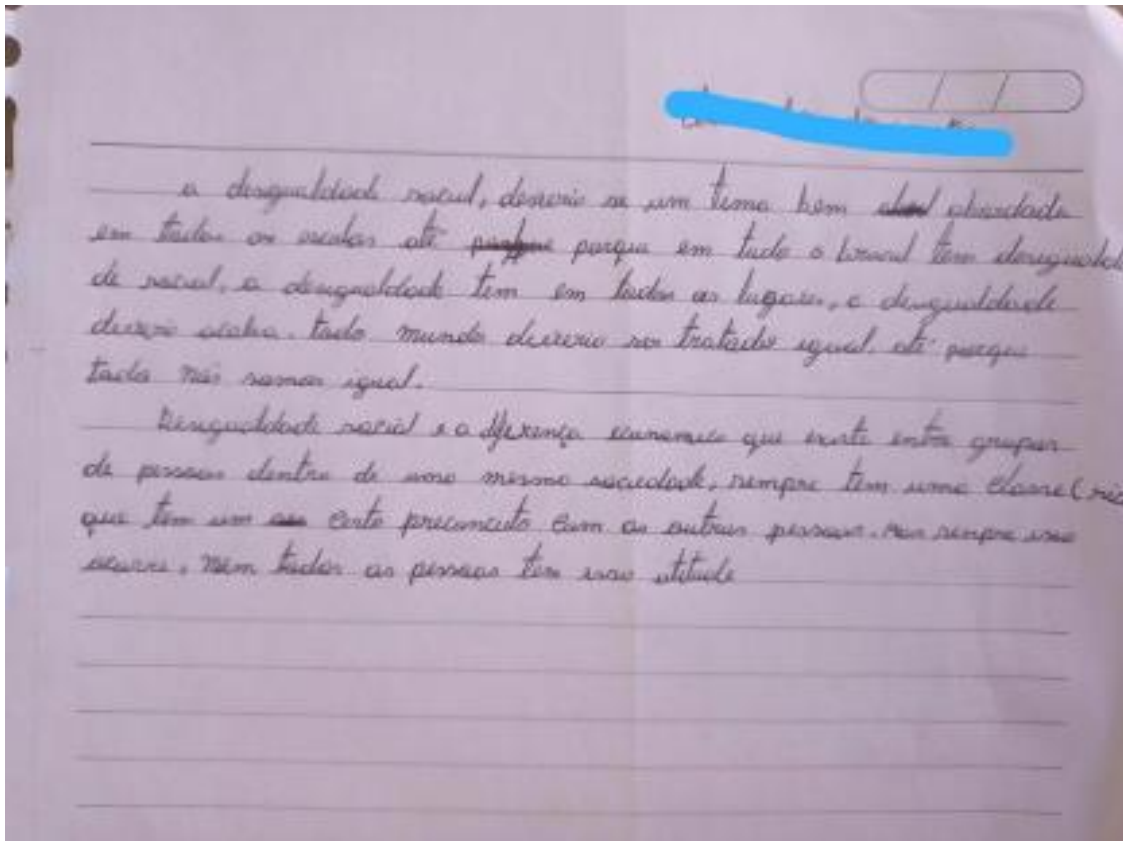 a desigualdade social, deveria se um tema bem abordado
em todas as escolas até porque em todo o brasil tem desigualda
de social, a desigualdade tem em todos os lugares, a desigualdade
deveria acaba. todo mundo deveria ser tratado igual, até porque
todo nós somos igual.
Desigualdade social e a diferença economica que existe entre grupos
de pessoas dentro de uma mesma sociedade, sempre tem uma classe (ric
que tem um certo preconceito com as outras pessoas. Mas sempre isso
ocorre, nem todas as pessoas tem essa atitude